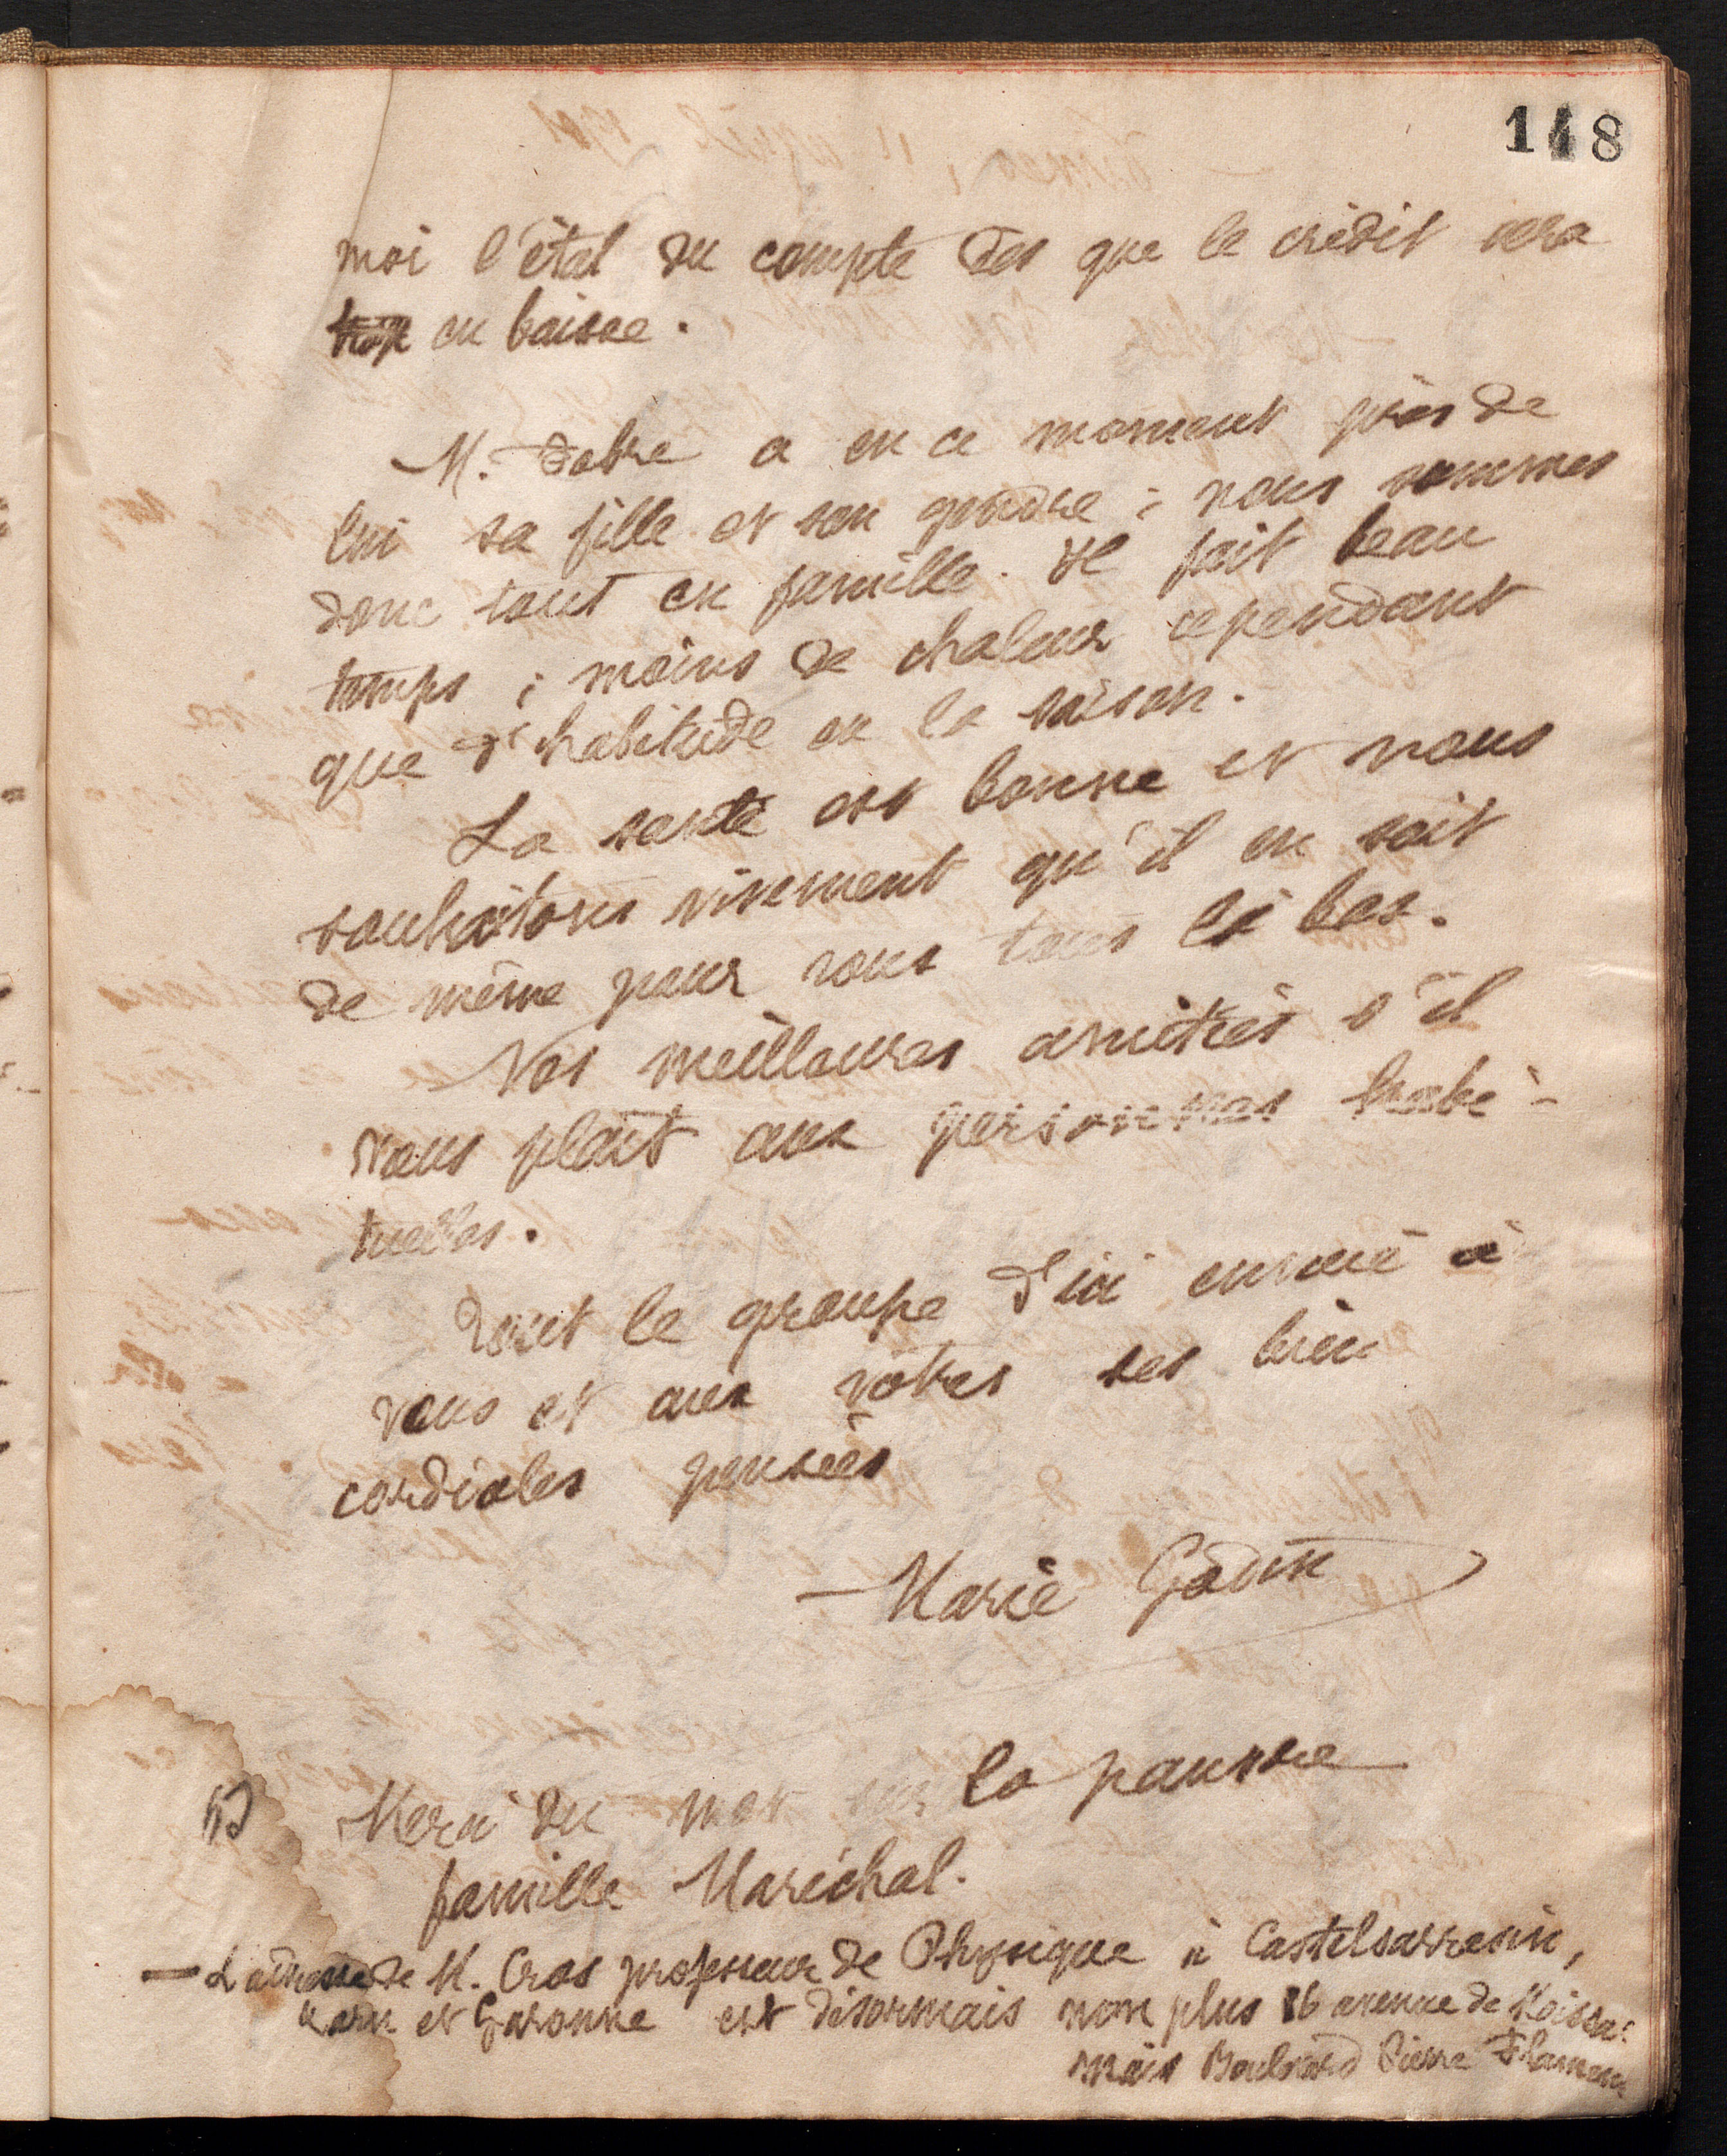 148
moi l'état du compte dès que le crédit sera
trop en baisse.
M. Fabre a en ce moment près de
lui sa fille et son gendre ; nous sommes
donc tout en famille. Il fait beau
temps ; moins de chaleur cependant
que d'habitude en la saison.
La santé est bonne et nous
souhaitons vivement qu'il en soit
de même pour vous tous là bas.
Nos meilleures amitiés s'il
vous plaît aux personnes habi-
tuelles.
Tout le groupe d'ici envoie à
vous et aux vôtres ses bien
cordiales pensées
Marie Godin
Merci du mot sur la pauvre
famille Maréchal.
— L'adresse de M. Cros professeur de Physique à Castelsarrasin,
Tarn et Garonne est désormais non plus 16 avenue de Moissac
mais Boulevard Pierre Flamens